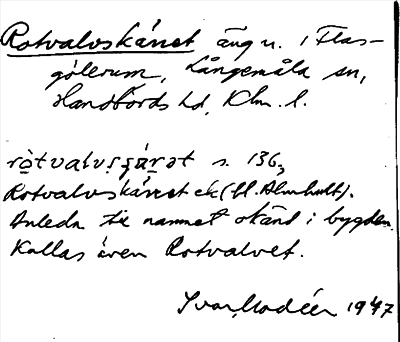 Rotvalvskäret äng n. i Flas-
gölerum, Långemåla sn,
Handbörds hd, Klm. l.
s. 136,
Rotvalvskäret ek (bl. Almhult).
Anledn till namnet okänd i bygden.
Kallas även Rotvalvet.
Ivar Modéer 1947